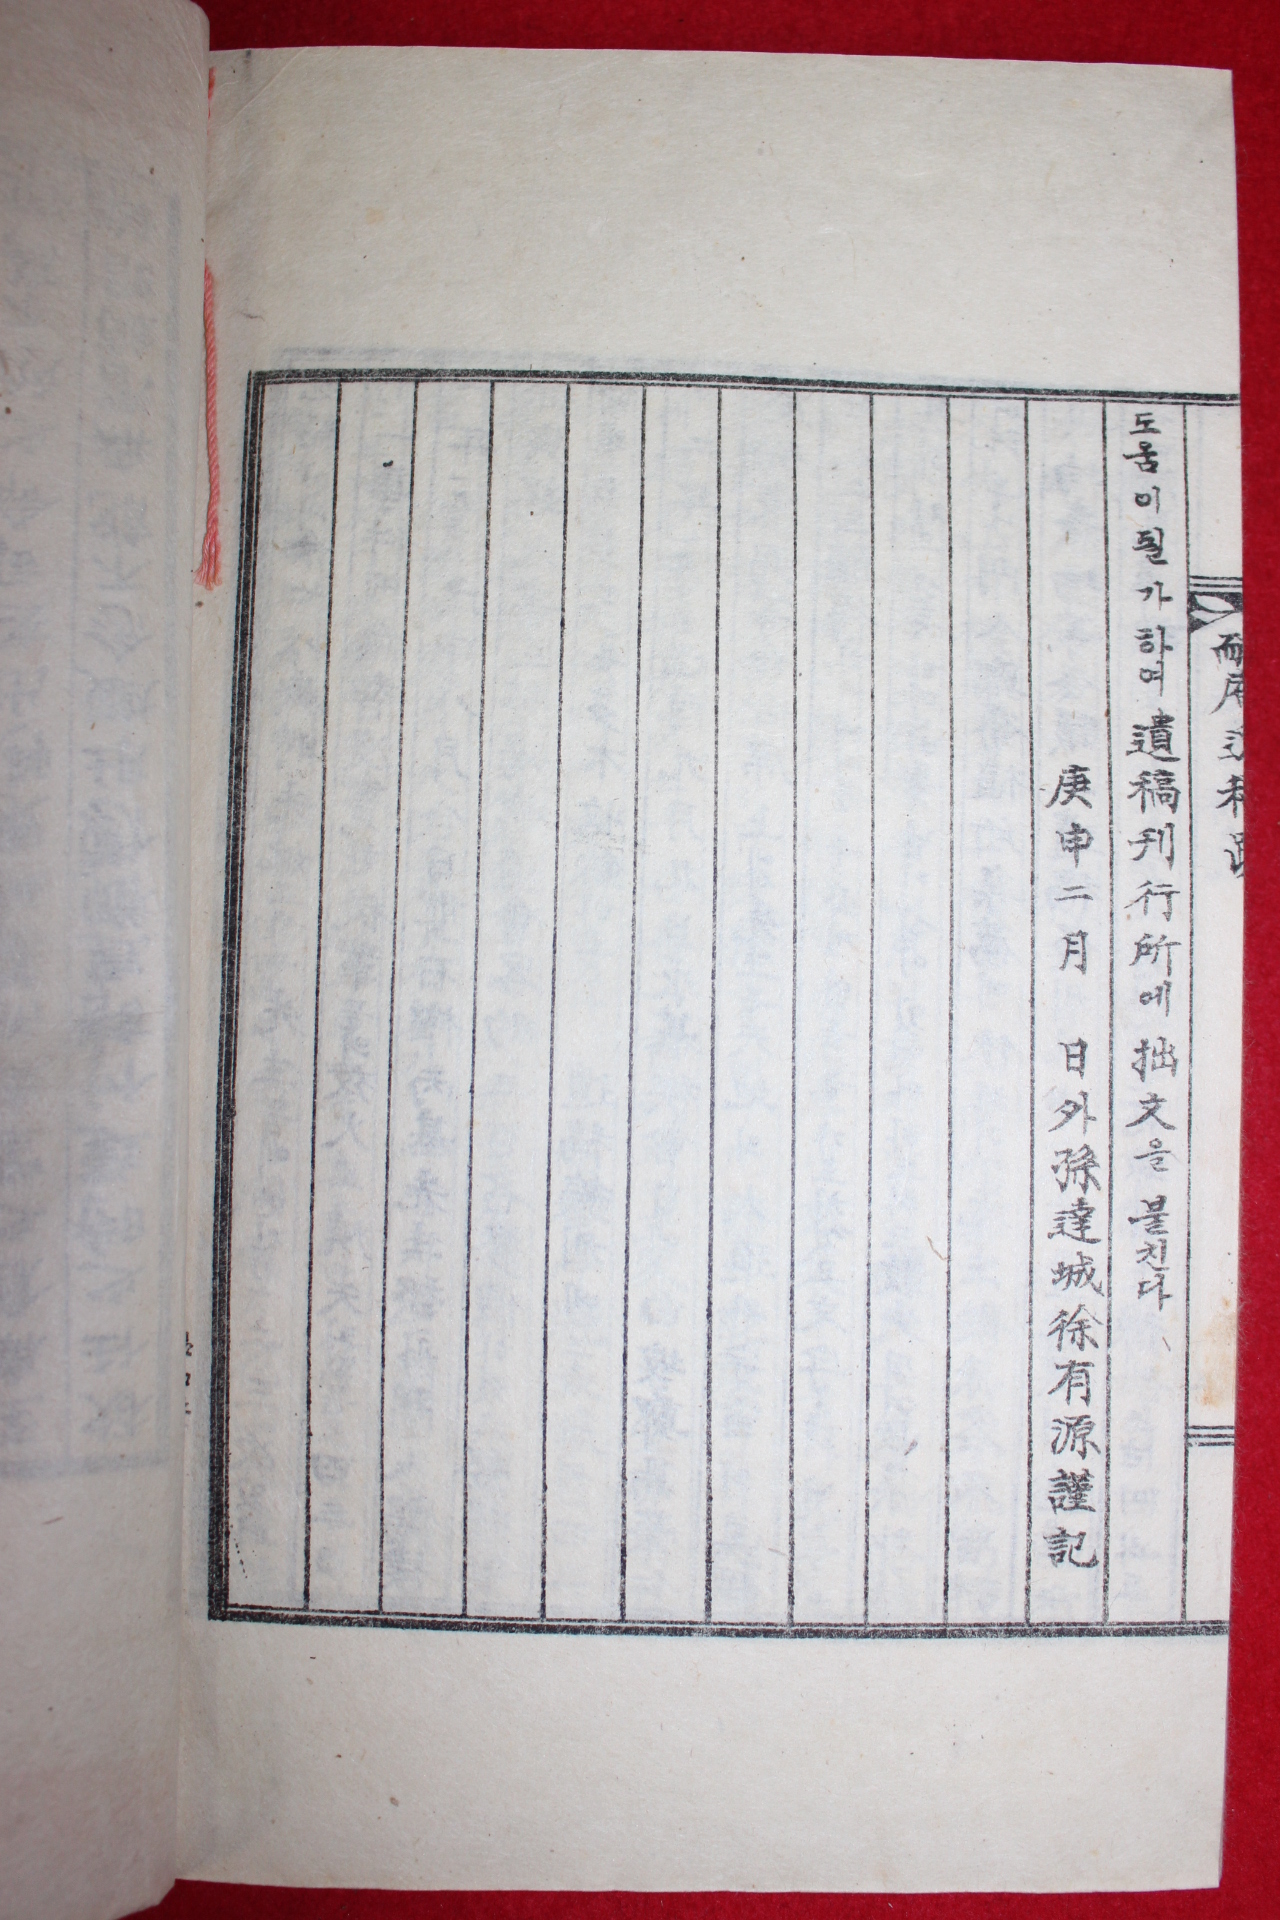 도움이될가하여遺稿刊行所에 拙文을 붙친다
庚申二月 日外孫達城徐有源謹記